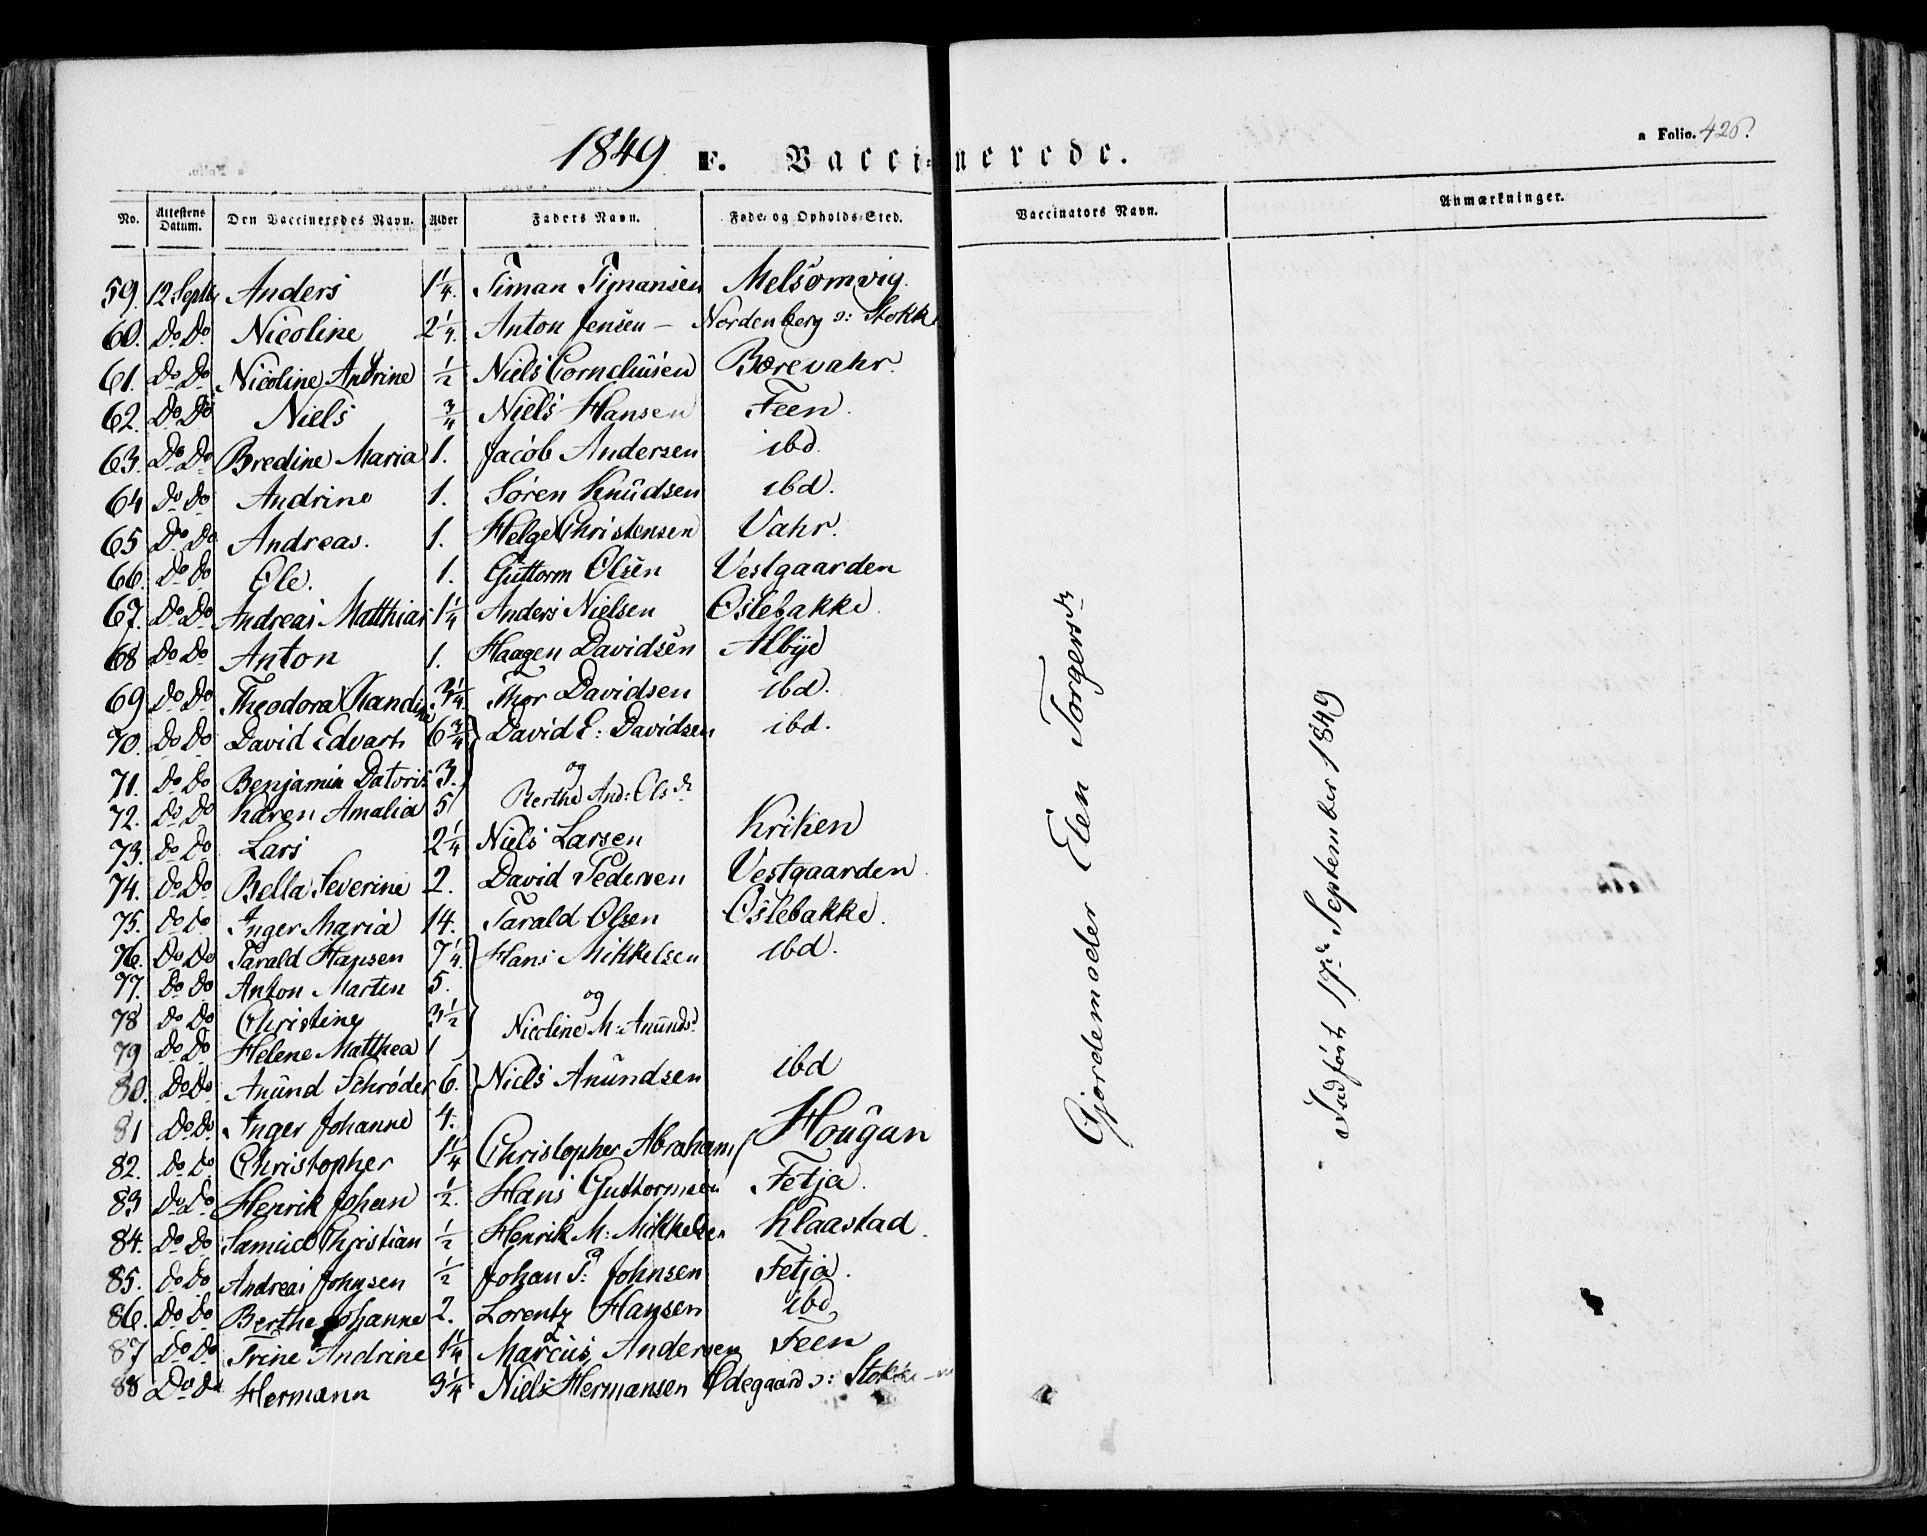 a Folio. 426.
1849 F. Vaccinerede.
No. Attestens Datum. Den Vaccineredes Navn. Alder Faders Navn. Føde- og Opholds-Sted. Vaccinators Navn. Anmærkninger.
59. 12 Septbr Anders 1 1/4. Timan Timansen Melsomvig.
60. Do Do Nicoline 2 1/4. Anton Jensen — Nordenberg ɔ: Stokke
61. Do Do Nicoline Andrine 1/2 Niels Corneliusen Bærevahr.
62. Do Do Niels 3/4 Niels Hansen Feen.
63. Do Do Bredine Maria 1. Jacob Andersen ibd.
64 Do Do Andrine 1. Søren Knudsen ibd.
65 Do Do Andreas. 1. Helge Christensen Vahr.
66. Do Do Ole. 1. Guttorm Olsen Vestgaarden
67. Do Do Andreas Matthias 1 1/4 Anders Nielsen Oslebakke.
68 Do Do Anton 1. Haagen Davidsen Albye
69 Do Do Theodora Chandine 3 1/4 Thor Davidsen ibd.
70. Do Do David Edvart 6 3/4 } David E: Davidsen ibd.
71. Do Do Benjamin Datoris 3. og
72. Do Do Karen Amalia 5 Berthe And: Olsdr
73. Do Do Lars 2 1/4 Niels Larsen Kriken
74. Do Do Bella Severine 2. David Pedersen Vestgaarden.
75. Do Do Inger Maria 14. Tarald Olsen Oslebakke.
76. Do Do Tarald Hansen 7 1/4. { Hans Mikkelsen ibd.
77. Do Do Anton Martin 5. og
78 Do Do Christine 3 1/2 Nicoline M: Anundsd
79 Do Do Helene Matthea 1
80. Do Do Anund Schrøder 6. } Niels Anundsen ibd
81 Do Do Inger Johanne 4.
82. Do Do Christopher 1 1/4 Christopher Abrahams Hougan
83 Do Do Henrik Johan 1/2. Hans Guttormsen Fetja.
84. Do Do Samuel Christian 1/2 Henrik M: Mikkelsen Klaastad.
85. Do Do Andreas Johnsen 1/2 Johan P: Johnsen Fetja.
86. Do Do Berthe Johanne 2. Lorentz Hansen ibd.
87 Do Do Trine Andrine 1 1/4 Marcus Andersen Feen
88 Do Do Hermann 3 1/4 Niels Hermansen Ødegaard ɔ: Stokke
Gjordemoder Elen Torgersdr
Indført 17de September 1849